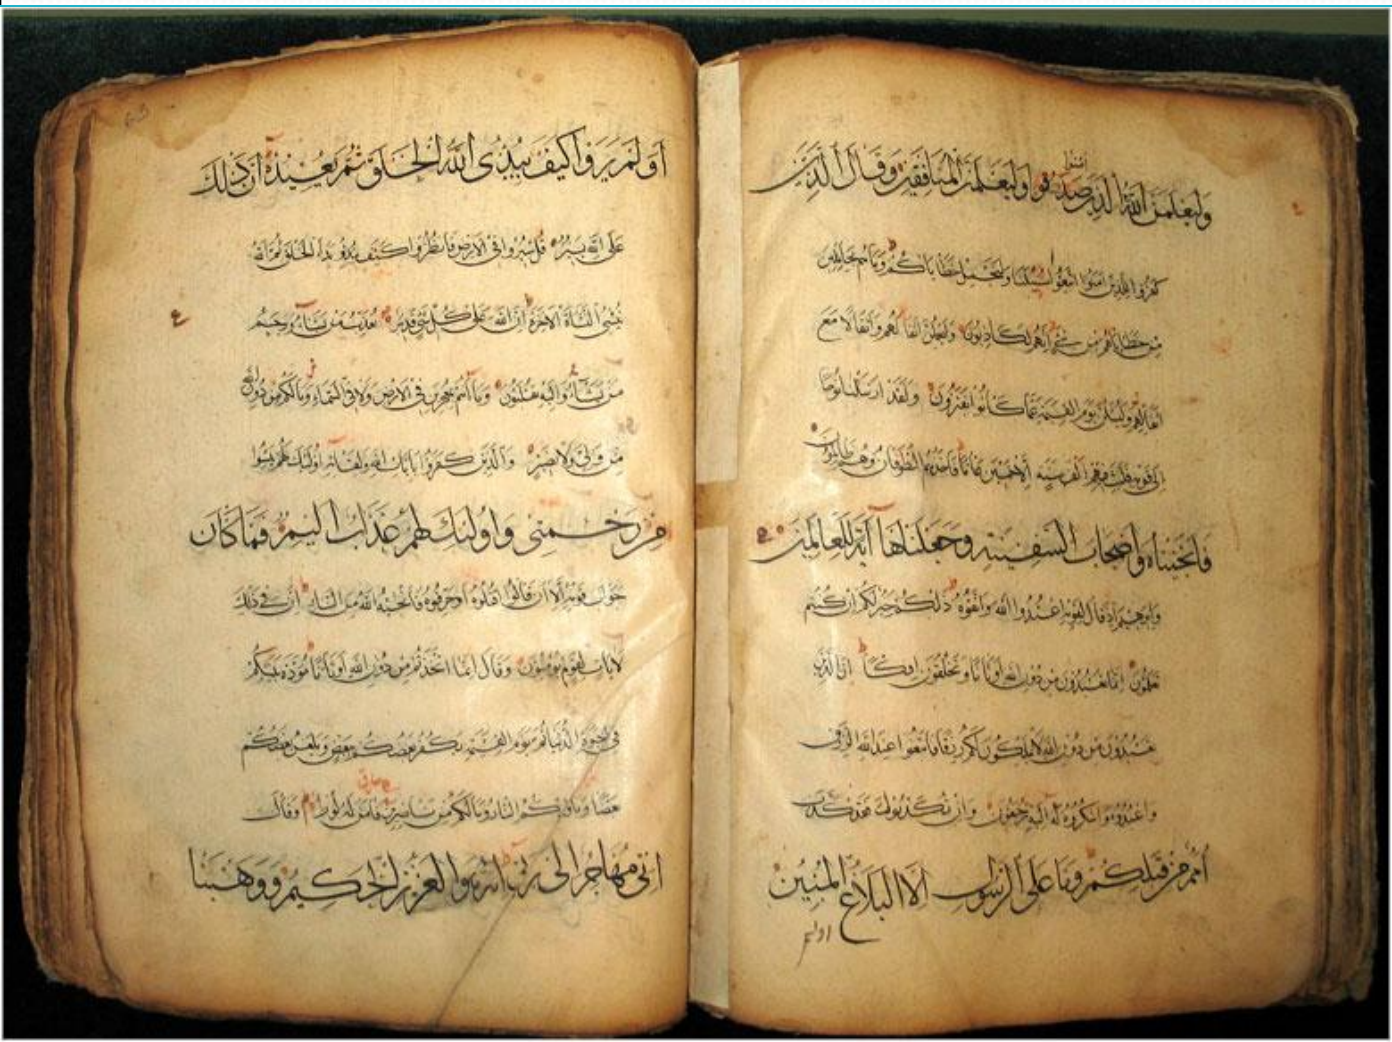 وليعلمن الله الذين صدقوا وليعلمن المنافقين وقال الذين
امنوا
كفروا للذين امنوا اتبعوا سبيلنا ولنحمل خطاياكم وما هم بحاملين
من خطاياهم من شئ انهم لكاذبون وليحملن اثقالهم واثقالا مع
اثقالهم وليسئلن يوم القيمة عما كانوا يفترون ولقد ارسلنا نوحا
الى قومه فلبث فيهم الف سنة الا خمسين عاما فاخذهم الطوفان وهم ظالمون
فانجيناه واصحاب السفينة وجعلناها آية للعالمين
وابرهيم اذ قال لقومه اعبدوا الله واتقوه ذلكم خير لكم ان كنتم
تعلمون انما تعبدون من دون الله اوثانا وتخلقون افكا ان الذين
تعبدون من دون الله لا يملكون لكم رزقا فابتغوا عند الله الرزق
واعبدوه واشكروا له اليه ترجعون وان تكذبوا فقد كذب
امم من قبلكم وما على الرسول الا البلاغ المبين
اولم
اولم يروا كيف يبدئ الله الخلق ثم يعيده ان ذلك
على الله يسير قل سيروا فى الارض فانظروا كيف بدأ الخلق ثم الله
ينشئ النشأة الاخرة ان الله على كل شئ قدير يعذب من يشاء ويرحم
ع
من يشاء واليه تقلبون وما انتم بمعجزين فى الارض ولا فى السماء وما لكم من دون الله
من ولى ولا نصير والذين كفروا بايات الله ولقائه اولئك يئسوا
من رحمتى واولئك لهم عذاب اليم فما كان
جواب قومه الا ان قالوا اقتلوه او حرقوه فانجيه الله من النار ان فى ذلك
لايات لقوم يؤمنون وقال انما اتخذتم من دون الله اوثانا مودة بينكم
فى الحيوة الدنيا ثم يوم القيمة يكفر بعضكم ببعض ويلعن بعضكم
بعضا ومأويكم النار وما لكم من ناصرين فامن له لوط وقال
انى مهاجر الى ربى انه هو العزيز الحكيم ووهبنا